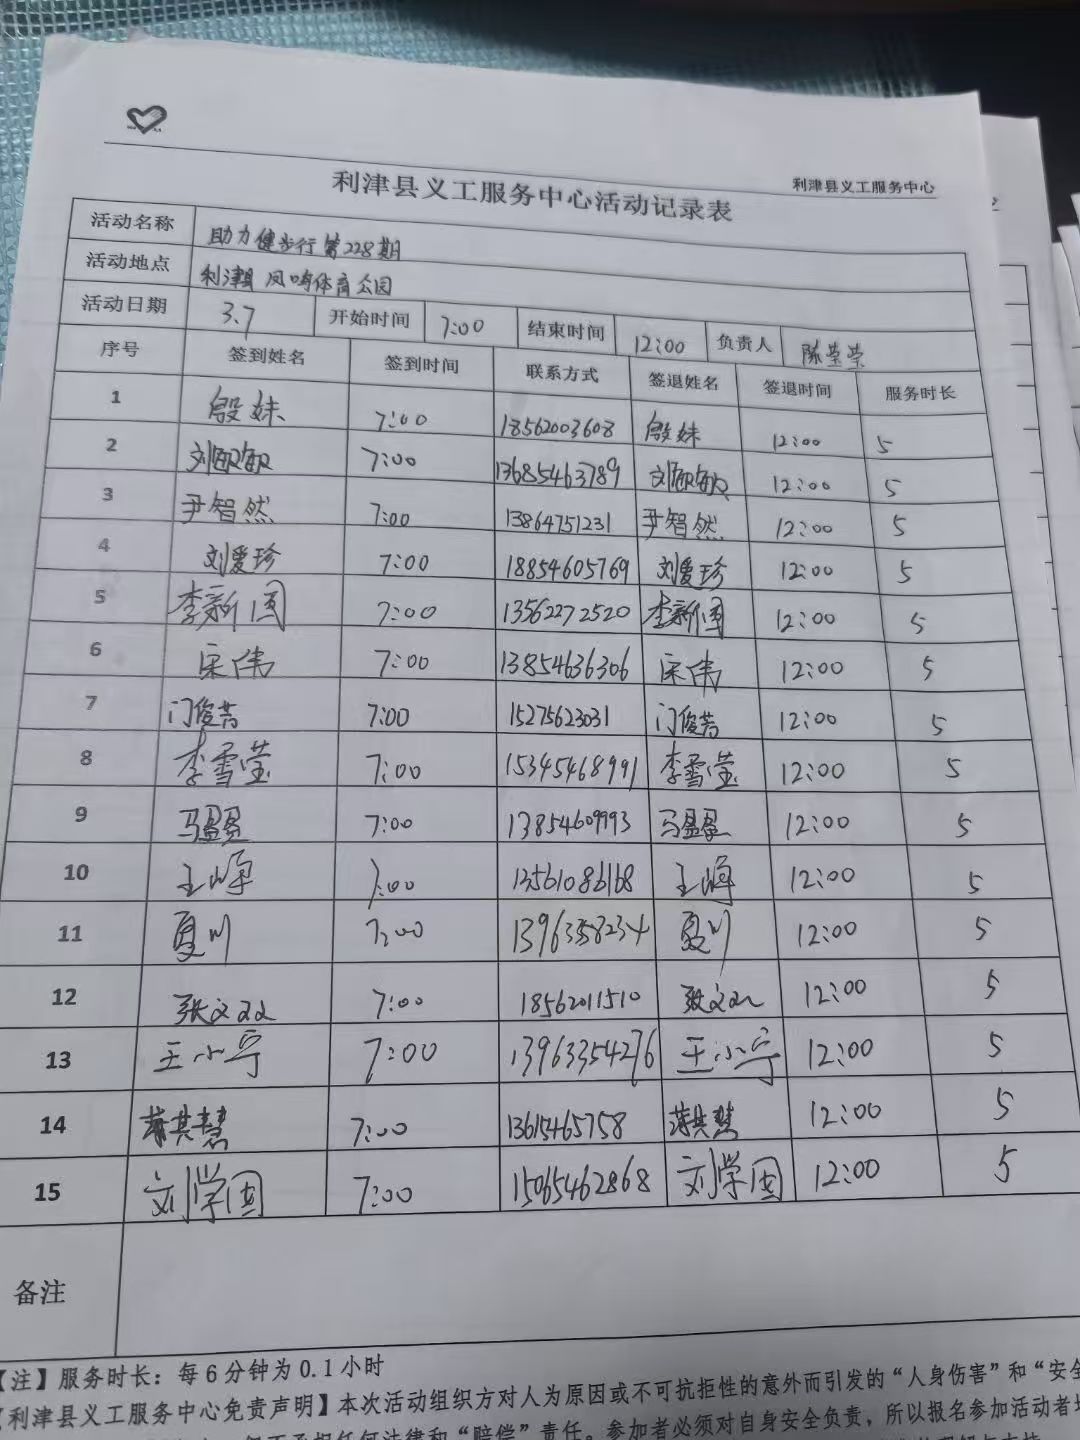 利津县义工服务中心
利津县义工服务中心活动记录表
活动名称 助力健步行第228期
活动地点 利津县凤鸣体育公园
活动日期 3.7 开始时间 7:00 结束时间 12:00 负责人 陈莹莹
序号 签到姓名 签到时间 联系方式 签退姓名 签退时间 服务时长
1 殷妹 7:00 18562003608 殷妹 12:00 5
2 刘敏敏 7:00 13685463789 刘敏敏 12:00 5
3 尹智然 7:00 13864751231 尹智然 12:00 5
4 刘爱珍 7:00 18854605769 刘爱珍 12:00 5
5 李新国 7:00 13562272520 李新国 12:00 5
6 宋伟 7:00 13854636306 宋伟 12:00 5
7 门俊芳 7:00 15275623031 门俊芳 12:00 5
8 李雪莹 7:00 15345468991 李雪莹 12:00 5
9 马盈盈 7:00 13854609993 马盈盈 12:00 5
10 王峰 7:00 13561086168 王峰 12:00 5
11 夏川 7:00 13963358234 夏川 12:00 5
12 张文双 7:00 18562011510 张文双 12:00 5
13 王小宁 7:00 13963354276 王小宁 12:00 5
14 蒋其慧 7:00 13615465758 蒋其慧 12:00 5
15 刘学国 7:00 15065462868 刘学国 12:00 5
备注
【注】服务时长：每6分钟为0.1小时
【利津县义工服务中心免责声明】本次活动组织方对人为原因或不可抗拒性的意外而引发的“人身伤害”和“安全
任何法律和“赔偿”责任。参加者必须对自身安全负责，所以报名参加活动者